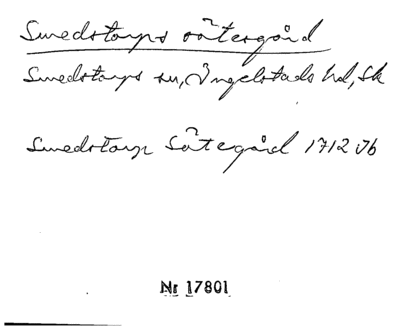 Smedstorps sätesgård
Smedstorps sn, Ingelstads hd, Sk
Smedstorp Sätegård 1712 Jb
Nr 17801